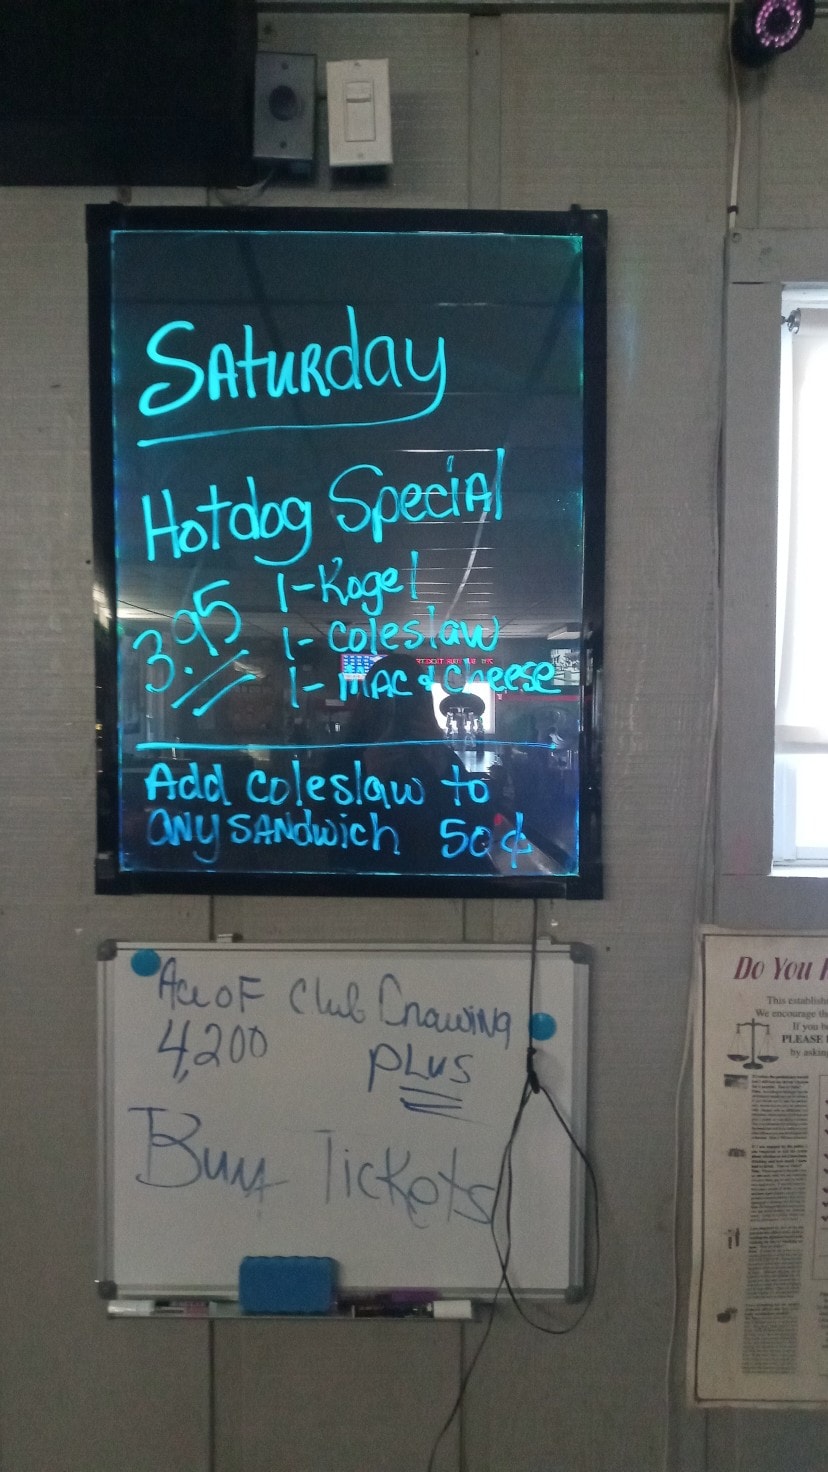 Saturday
Hotdog Special
3.95
1-Kogel
1-Coleslaw
1-Mac & Cheese
Add coleslaw to
any sandwich 50¢
Ace OF Club Drawing
4,200 PLUS
Buy Tickets
Do You
This establish
We encourage the
If you b
PLEASE
by asking